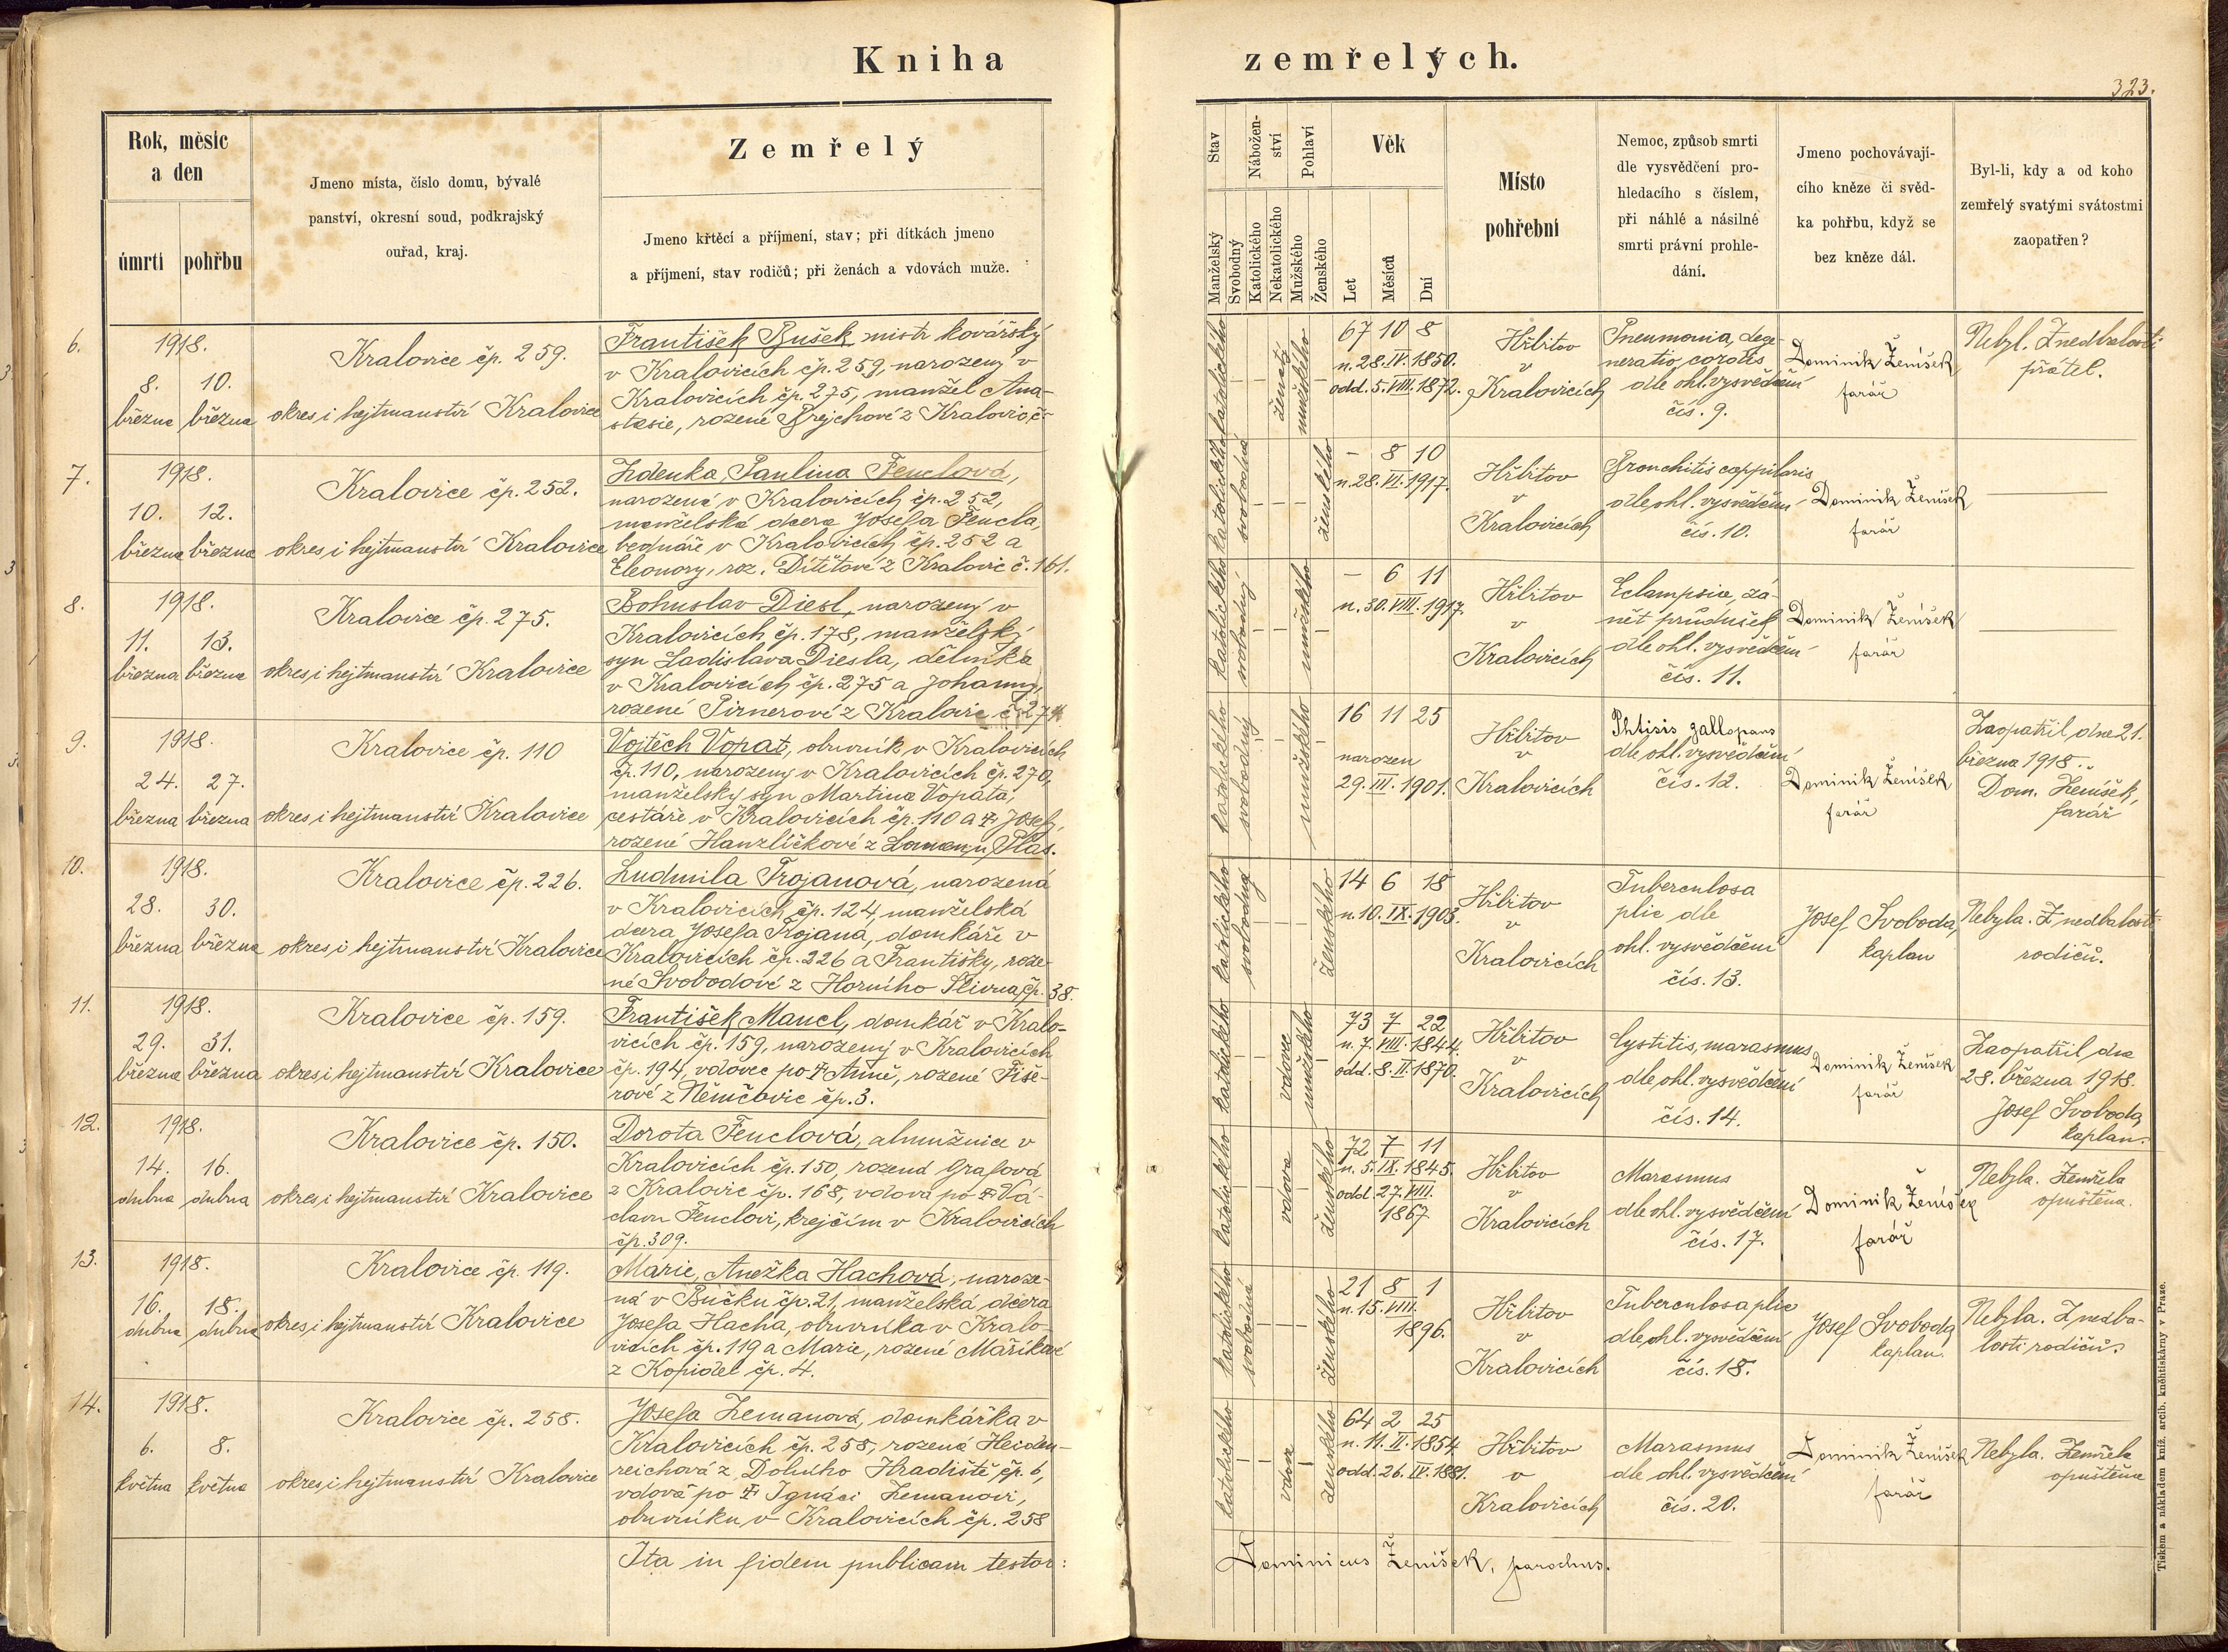 Kniha zemřelých.
323.
Rok, měsíc
a den
úmrtí
pohřbu
Jmeno místa, číslo domu, bývalé
panství, okresní soud, podkrajský
ouřad, kraj.
Zemřelý
Jmeno křtěcí a příjmení, stav; při dítkách jmeno
a příjmení, stav rodičů; při ženách a vdovách muže.
Stav
Manželský
Svobodný
Nábožen-
ství
Katolického
Nekatolického
Pohlaví
Mužského
Ženského
Věk
Let
Měsíců
Dní
Místo
pohřební
Nemoc, způsob smrti
dle vysvědčení pro-
hledacího s číslem,
při náhlé a násilné
smrti právní prohle-
dání.
Jmeno pochovávají-
cího kněze či svěd-
ka pohřbu, když se
bez kněze dál.
Byl-li, kdy a od koho
zemřelý svatými svátostmi
zaopatřen?
6.
1918.
8. 10.
března března
Kralovice čp. 259.
okres i hejtmanství Kralovice
František Bušek mistr kovářský
v Kralovicích čp. 259, narozený v
Kralovicích čp. 275, manžel Ana-
stasie, rozené Brejchové z Kralovic č.
katolického
ženatý
mužského
67 10 8
n. 28. IV. 1850.
odd. 5. VIII. 1872.
Hřbitov
v
Kralovicích
Pneumonia, dege-
neratio cordis
dle ohl. vysvědčení
čís. 9.
Dominik Ženíšek
farář
Nebyl. Z nedbalosti
přátel.
7.
1918.
10. 12.
března března
Kralovice čp. 252.
okres i hejtmanství Kralovice
Zdenka, Paulina Fenclová,
narozená v Kralovicích čp. 252,
manželská dcera Josefa Fencla,
bednáře v Kralovicích čp. 252 a
Eleonory, roz. Dítětové z Kralovic č. 161.
katolického
svobodná
ženského
– 8 10
n. 28. VI. 1917.
Hřbitov
v
Kralovicích
Bronchitis cappilaris
dle ohl. vysvědčení
čís. 10.
Dominik Ženíšek
farář
8.
1918.
11. 13.
března března
Kralovice čp. 275.
okres i hejtmanství Kralovice
Bohuslav Diesl, narozený v
Kralovicích čp. 178, manželský
syn Ladislava Diesla, dělníka
v Kralovicích čp. 275 a Johanny,
rozené Pirnerové z Kralovic č. 274
katolického
svobodný
mužského
– 6 11
n. 30. VIII. 1917.
Hřbitov
v
Kralovicích
Eclampsie, zá-
nět průdušek
dle ohl. vysvědčení
čís. 11.
Dominik Ženíšek
farář
9.
1918.
24. 27.
března března
Kralovice čp. 110
okres i hejtmanství Kralovice
Vojtěch Vopat, obuvník v Kralovicích
čp. 110, narozený v Kralovicích čp. 270,
manželský syn Martina Vopata,
cestáře v Kralovicích čp. 110 a ✝ Josefy,
rozené Hanzlíčkové z Loman u Plas.
katolického
svobodný
mužského
16 11 25
narozen
29. III. 1901.
Hřbitov
v
Kralovicích
Phtisis gallopans
dle ohl. vysvědčení
čís. 12.
Dominik Ženíšek
farář
Zaopatřil dne 21.
března 1918.
Dom. Ženíšek,
farář
10.
1918.
28. 30.
března března
Kralovice čp. 226.
okres i hejtmanství Kralovice
Ludmila Trojanová, narozená
v Kralovicích čp. 124, manželská
dcera Josefa Trojana, domkáře v
Kralovicích čp. 226 a Františky, roze-
né Svobodové z Horního Slivna, čp. 38.
katolického
svobodná
ženského
14 6 18
n. 10. IX. 1903.
Hřbitov
v
Kralovicích
Tuberculosa
plic dle
ohl. vysvědčení
čís. 13.
Josef Svoboda,
kaplan
Nebyla. Z nedbalosti
rodičů.
11.
1918.
29. 31.
března března
Kralovice čp. 159.
okres i hejtmanství Kralovice
František Mancl, domkář v Kralo-
vicích čp. 159, narozený v Kralovicích
čp. 194, vdovec po ✝ Anně, rozené Fiše-
rové z Němčovic čp. 3.
katolického
vdovec
mužského
73 7 22
n. 7. VIII. 1844.
odd. 8. II. 1870.
Hřbitov
v
Kralovicích
Cystitis, marasmus
dle ohl. vysvědčení
čís. 14.
Dominik Ženíšek
farář
Zaopatřil dne
28. března 1918.
Josef Svoboda,
kaplan.
12.
1918.
14. 16.
dubna dubna
Kralovice čp. 150.
okres i hejtmanství Kralovice
Dorota Fenclová, almužnice v
Kralovicích čp. 150, rozená Grafová
z Kralovic čp. 168, vdova po ✝ Vá-
clavu Fenclovi, krejčím v Kralovicích
čp. 309.
katolického
vdova
ženského
72 7 11
n. 5. IX. 1845.
odd. 27. VIII.
1867
Hřbitov
v
Kralovicích
Marasmus
dle ohl. vysvědčení
čís. 17.
Dominik Ženíšek
farář
Nebyla. Zemřela
opuštěna.
13.
1918.
16. 18.
dubna dubna
Kralovice čp. 119.
okres i hejtmanství Kralovice
Marie, Anežka Hachová, naroze-
ná v Bučku čp. 21, manželská dcera
Josefa Hacha, obuvníka v Kralo-
vicích čp. 119 a Marie, rozené Maříkové
z Kopidel čp. 4.
katolického
svobodná
ženského
21 8 1
n. 15. VIII.
1896.
Hřbitov
v
Kralovicích
Tuberculosa plic
dle ohl. vysvědčení
čís. 18.
Josef Svoboda
kaplan.
Nebyla. Z nedba-
losti rodičů.
14.
1918.
6. 8.
května května
Kralovice čp. 258.
okres i hejtmanství Kralovice
Josefa Zemanová, domkářka v
Kralovicích čp. 258, rozená Heiden-
reichová z Dolního Hradiště čp. 6,
vdova po ✝ Ignáci Zemanovi,
obuvníku v Kralovicích čp. 258
katolického
vdova
ženského
64 2 25
n. 11. II. 1854
odd. 26. IV. 1881.
Hřbitov
v
Kralovicích
Marasmus
dle ohl. vysvědčení
čís. 20.
Dominik Ženíšek
farář
Nebyla. Zemřela
opuštěna
Ita in fidem publicam testor:
Dominicus Ženíšek, parochus.
Tiskem a nákladem kníž. arcib. kněhtiskárny v Praze.